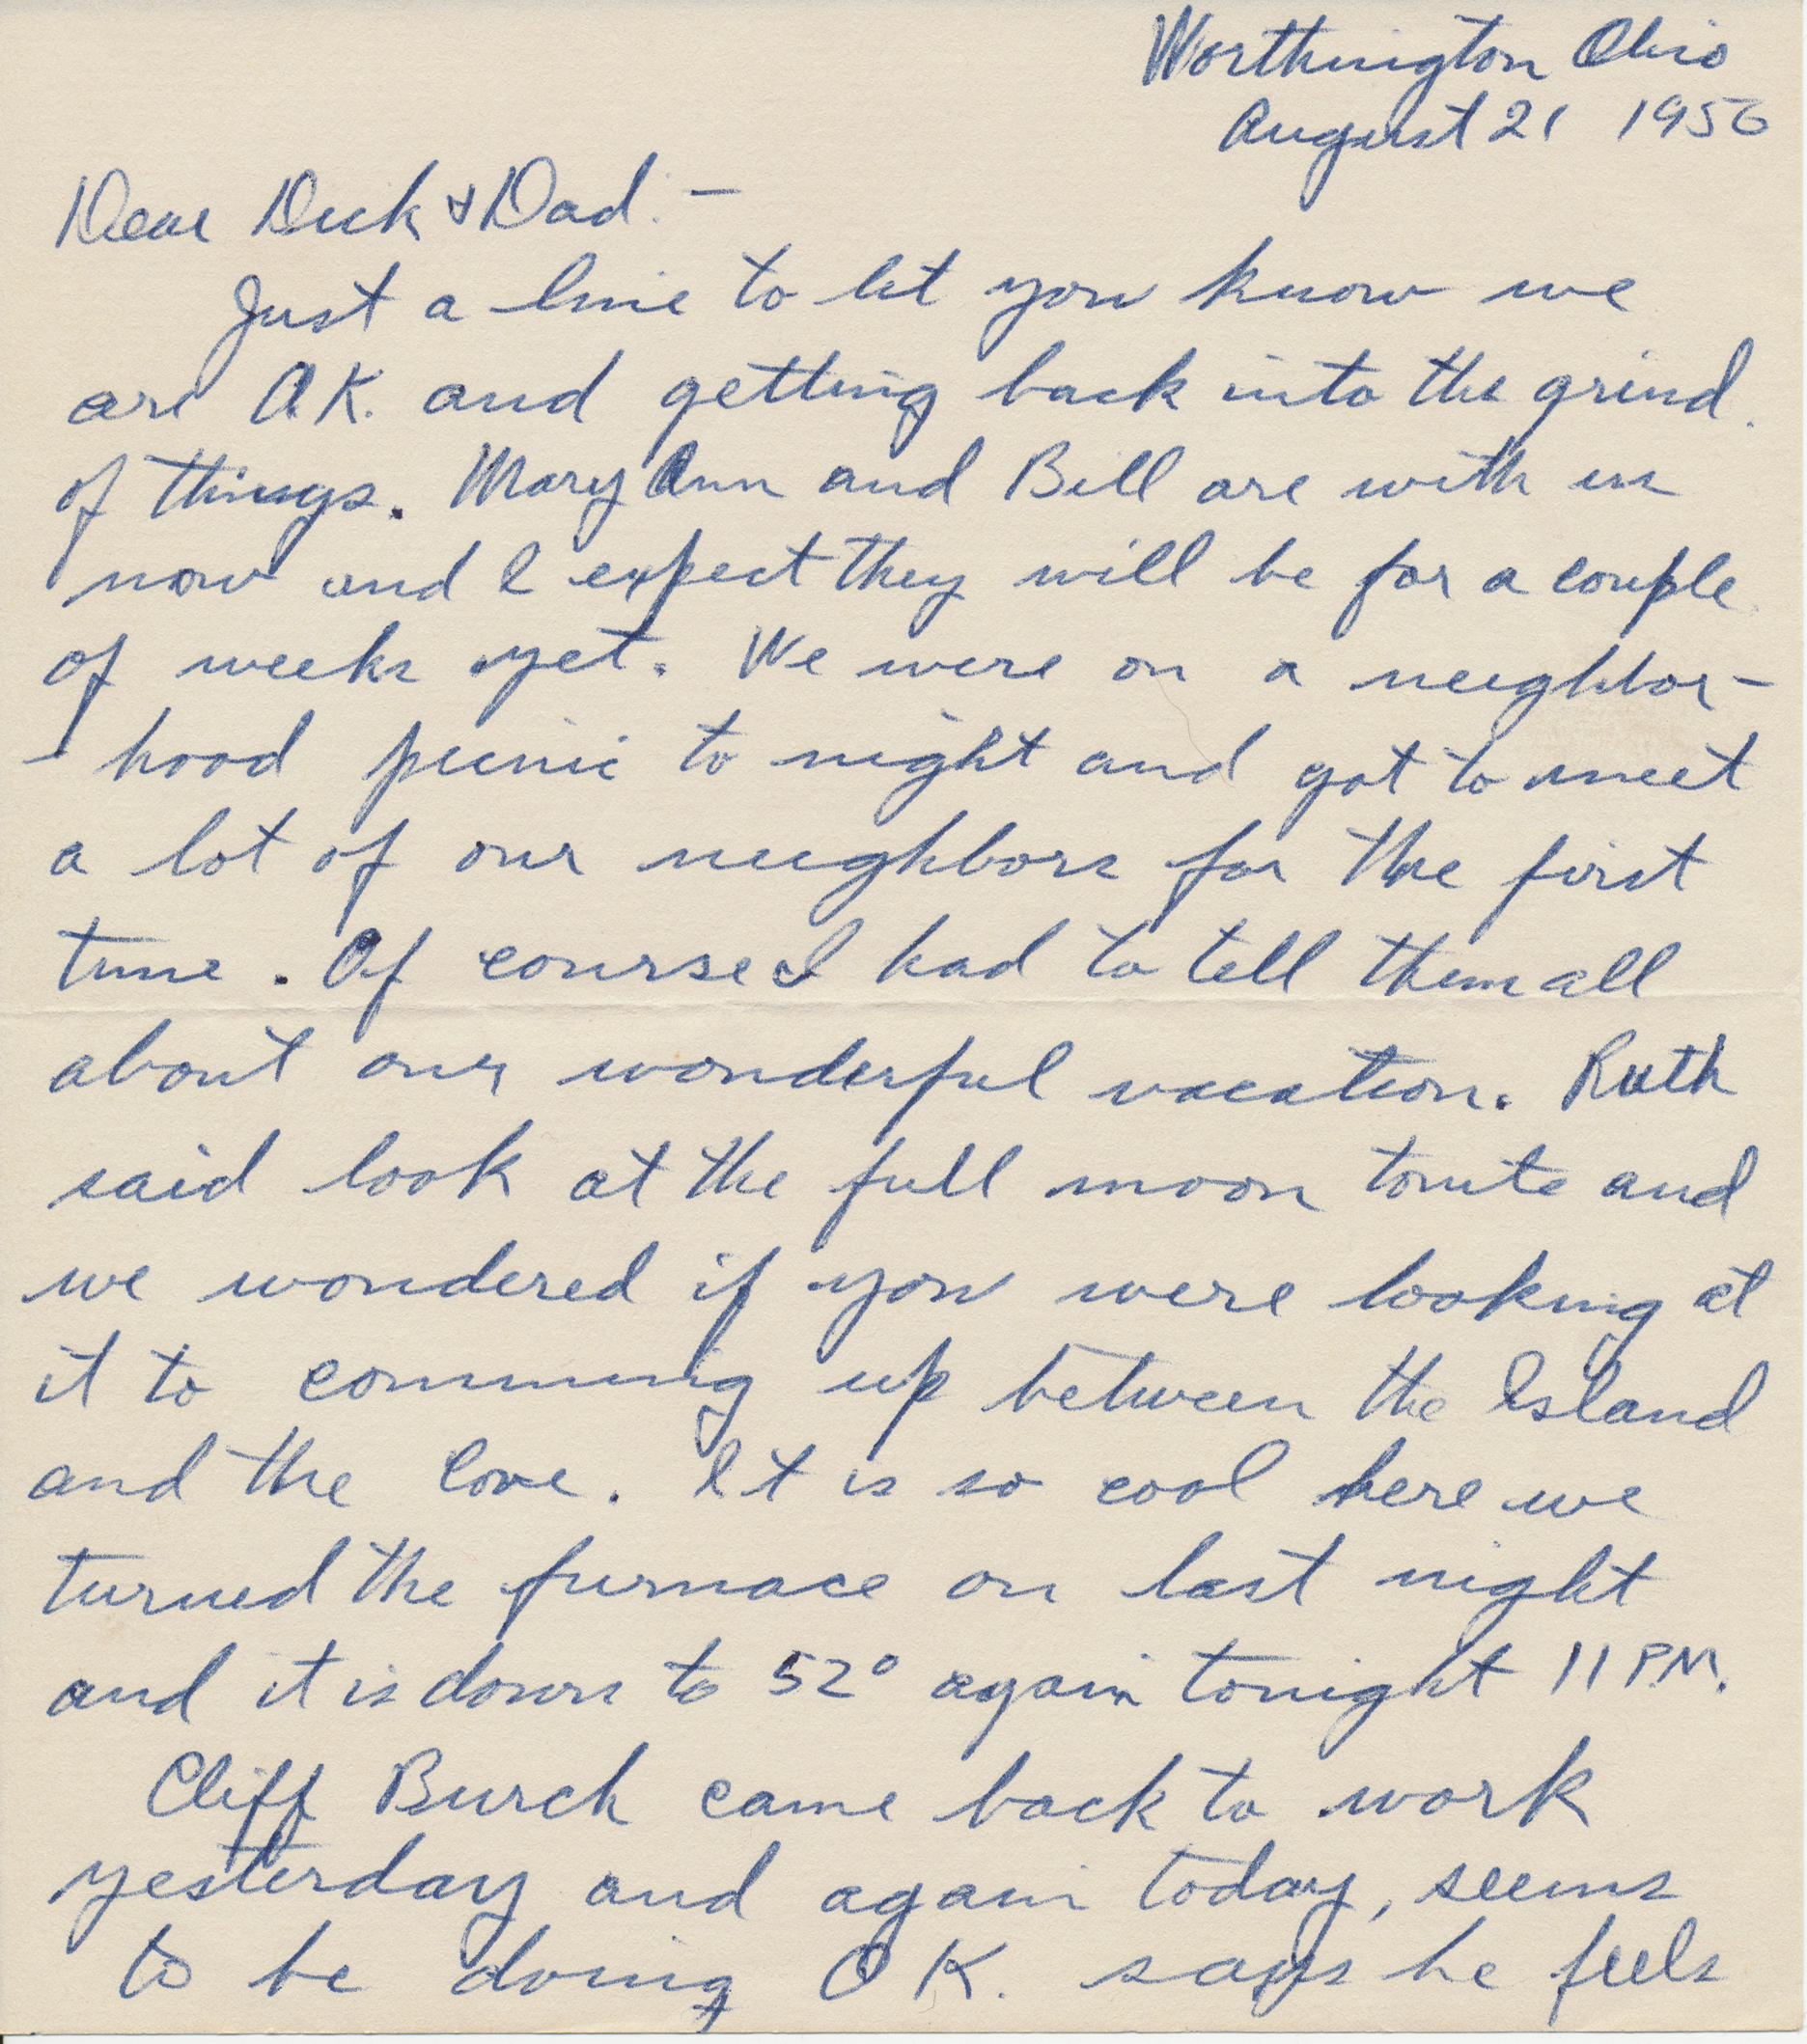 Worthington Ohio
August 21 1956
Dear Dick & Dad: –
Just a line to let you know we
are O.K. and getting back into the grind
of things. Mary Ann and Bill are with us
now and I expect they will be for a couple
of weeks yet. We were on a neighbor-
hood picnic to night and got to meet
a lot of our neighbors for the first
time. Of course I had to tell them all
about our wonderful vacation. Ruth
said look at the full moon tonite and
we wondered if you were looking at
it to comming up between the Island
and the Cove. It is so cool here we
turned the furnace on last night
and it is down to 52° again tonight 11 P.M.
Cliff Burch came back to work
yesterday and again today, seems
to be doing OK. says he feels